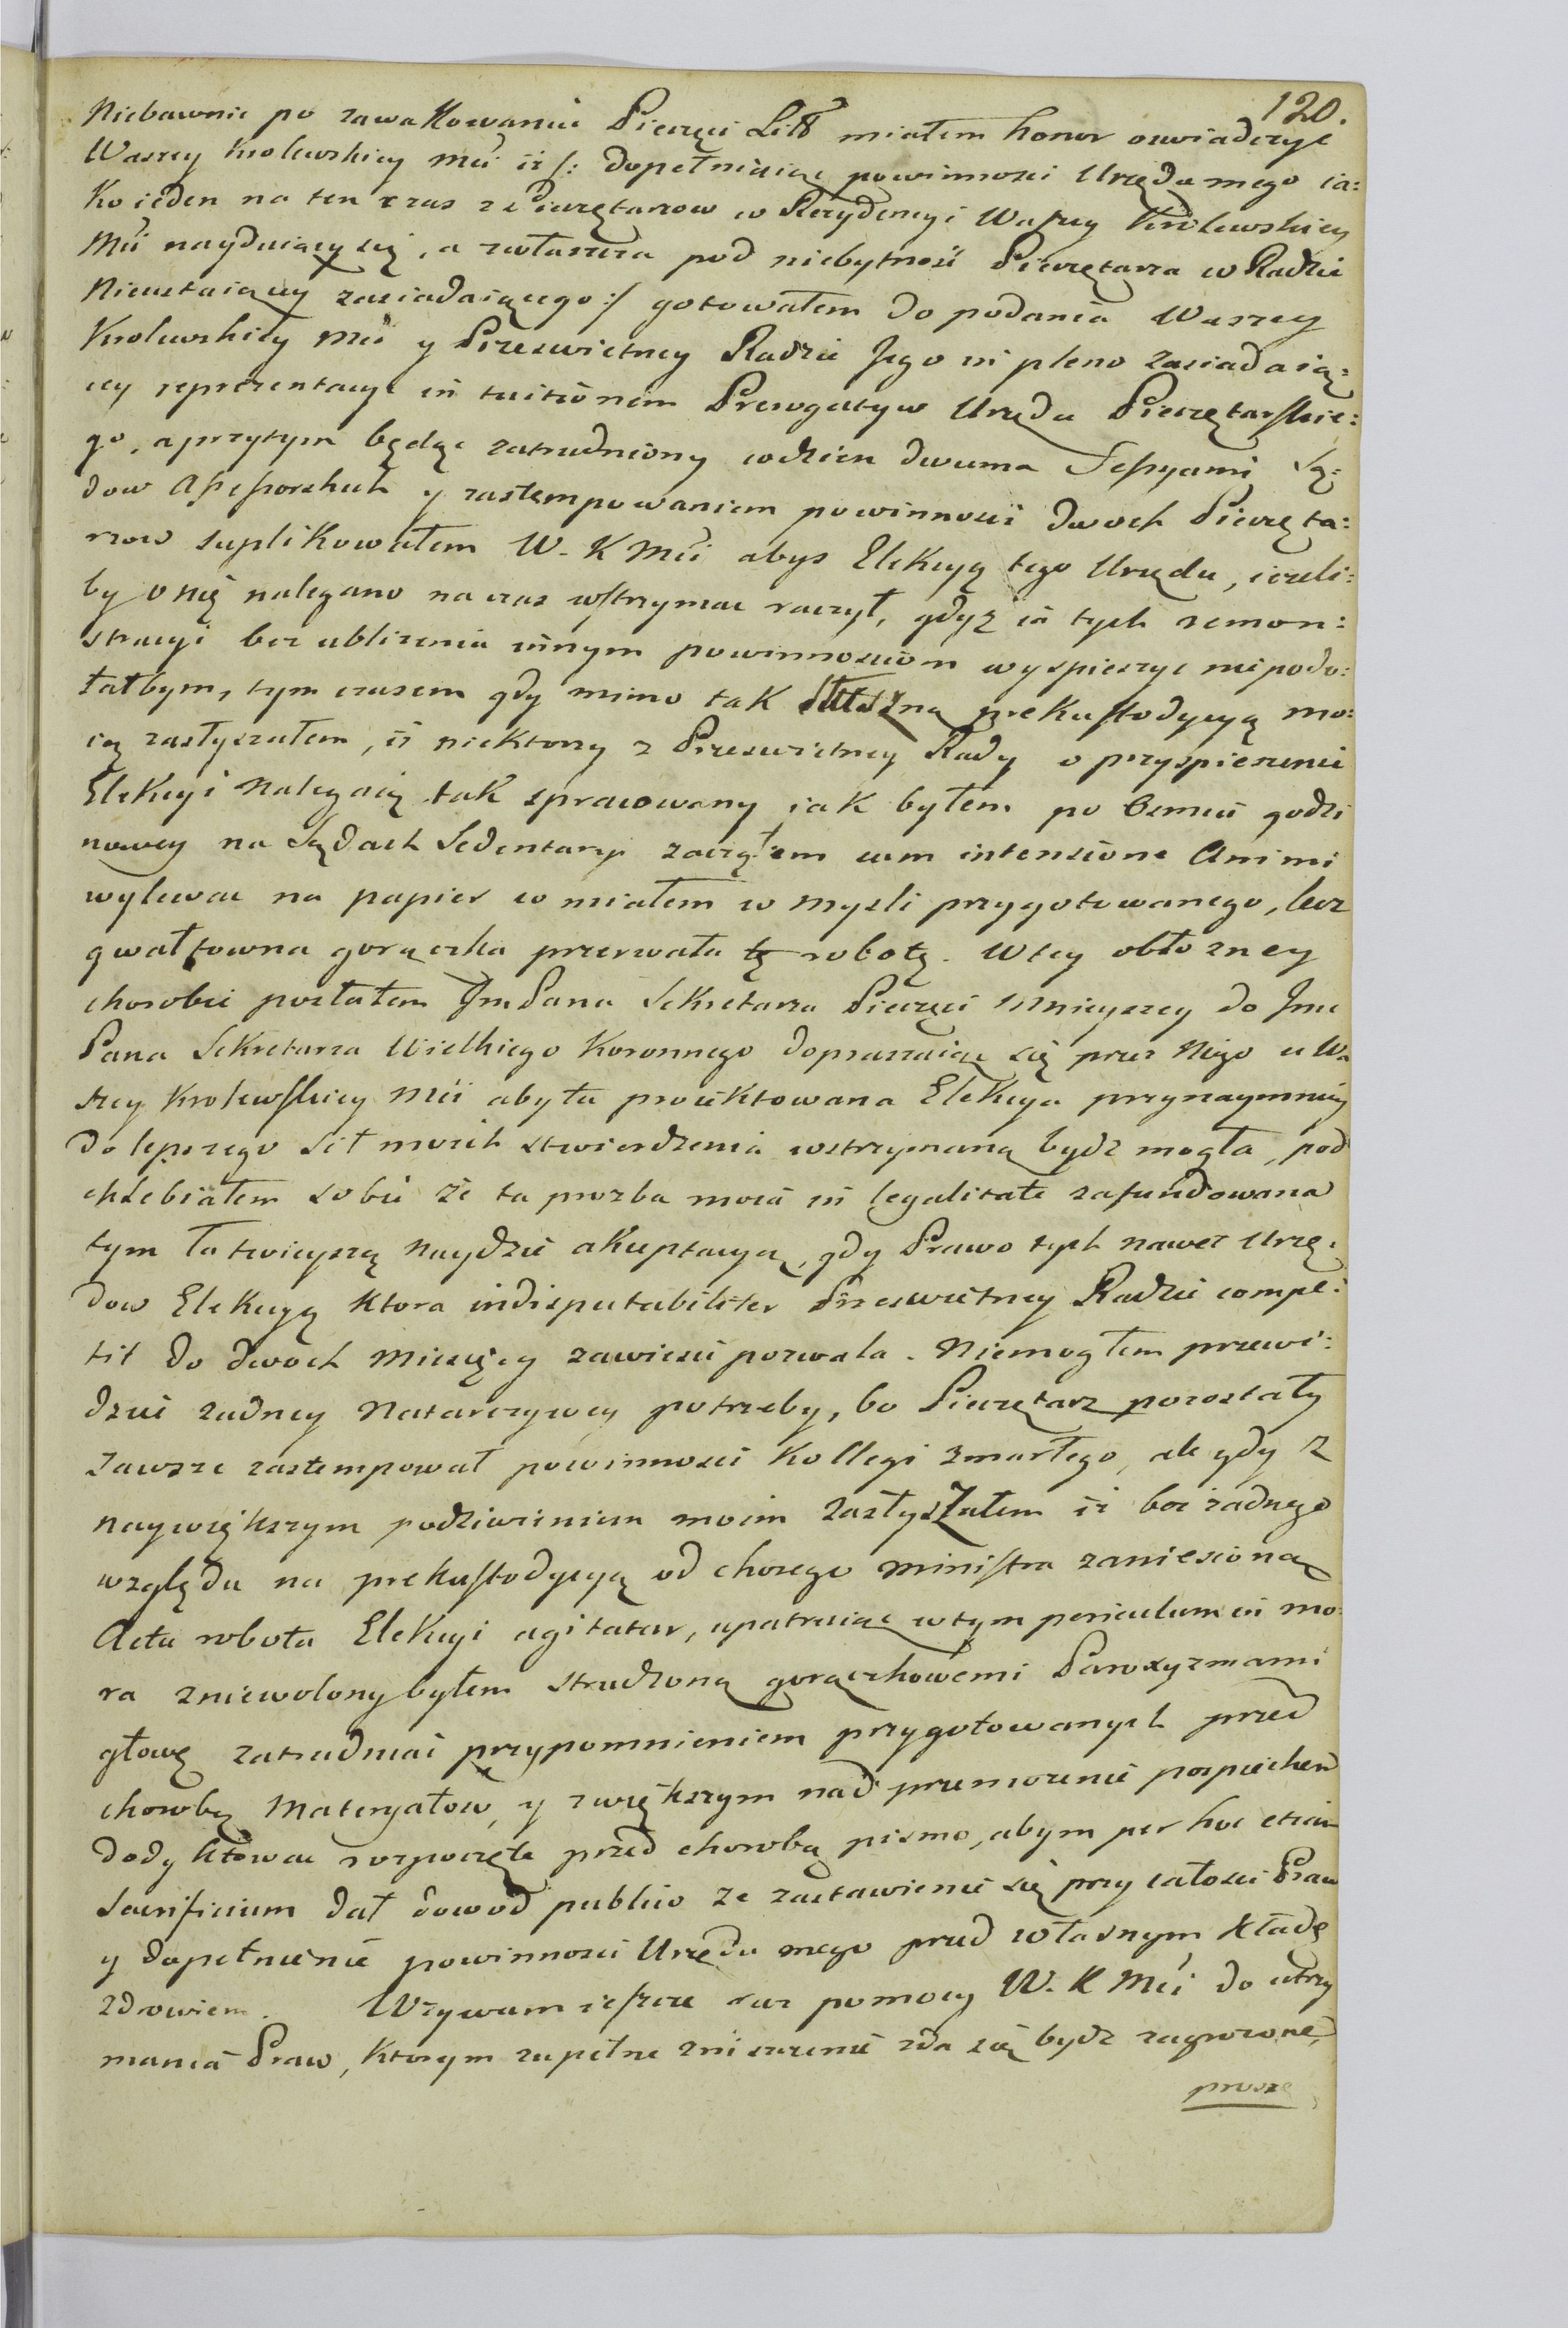 120.
Niebawnie po zawakowaniu Pieczęci Litt miałem honor oswiadczyć
Waszey Krolewskiey Mci iż /: dopełniaiąc powinnosci Urzędu mego ia:
ko ieden na ten czas z Pieczętarzow w Rezydencyi Waszey Krolewskiey
Mci nayduiący się, a zwłaszcza pod niebytnosć Pieczętarza w Radzie
Nieustaiącey zasiadaiącego :/ gotowałem do podania Waszey
Krolewskiey Mci y Przeswietney Radzie Jego in pleno zasiadaią:
cey reprezentacye in tuitionem Prerogatyw Urzędu Pieczętarskie:
go, a przytym będąc zatrudniony codzien dwuma Sessyami Są:
dow Assessorskich y zastempowaniem powinnosci dwoch Pieczęta:
rzow suplikowałem W. K Mci abys Elekcyą tego Urzędu, ieżeli:
by o nię nalegano na czas wstrzymac raczył, gdyż ia tych remon:
stracyi bez ubliżenia innym powinnosciom wyspieszyc niepodo:
łałbym, tym czasem gdy mimo tak słuszną prekustodycyą mo:
ią zasłyszałem, iż niektorzy z Przeswietney Rady o przyspieszenie
Elekcyi nalegaią tak spracowany iak byłem po osmiu godzi
nowey na Sądach Sedentaryi zacząłem cum intensione animi
wylewac na papier co miałem w mysli przygotowanego, lecz
gwałtowna gorączka przerwała tę robotę. W tey obłożney
chorobie posłałem JmPana Sekretarza Pieczęci Mnieyszey do Jmc
Pana Sekretarza Wielkiego Koronnego dopraszaiąc się przez Niego u Wa
szey Krolewskiey Mci aby ta proiektowana Elekcya przynaymniey
do lepszego sił moich stwierdzenia wstrzymaną bydz mogła, pod
chlebiałem sobie że ta prozba moia in legalitate zafundowana
tym łatwieyszą naydzie akceptacyą, gdy Prawo tych nawet Urzę:
dow Elekcyą ktora indisputabiliter Przeswietney Radzie compe:
tit do dwoch Miesięcy zawiesic pozwala. Niemogłem przewi:
dziec żadney natarczywey potrzeby, bo Pieczętarz pozostały
zawsze zastempował powinnosci Kollegi zmarłego, ale gdy z
naywiększym podziwieniem moim zasłyszałem iż bez żadnego
względu na prekustodycyą od chorego Ministra zaniesioną
Acta robota Elekcyi agitatur, upatruiąc w tym periculum in mo:
ra zniewolony byłem strudzoną gorączkowemi Paroxyzmami
głowę zatrudniac przypomnieniem przygotowanych przed
chorobą Materyałow, y z większym nad przemożenie pospiechem
dodyktowac rozpoczęte przed chorobą pismo, abym per hoc etiam
sacrificium dał dowod publico że zastawienie się przy całosci Praw
y dopełnienie powinnosci Urzędu mego przed własnym kładę
zdrowiem. Wzywam ieszcze raz pomocy W. K Mci do utrzy
mania Praw, ktorym zupełne zniszczenie zda się bydz zagrożone,
proszę